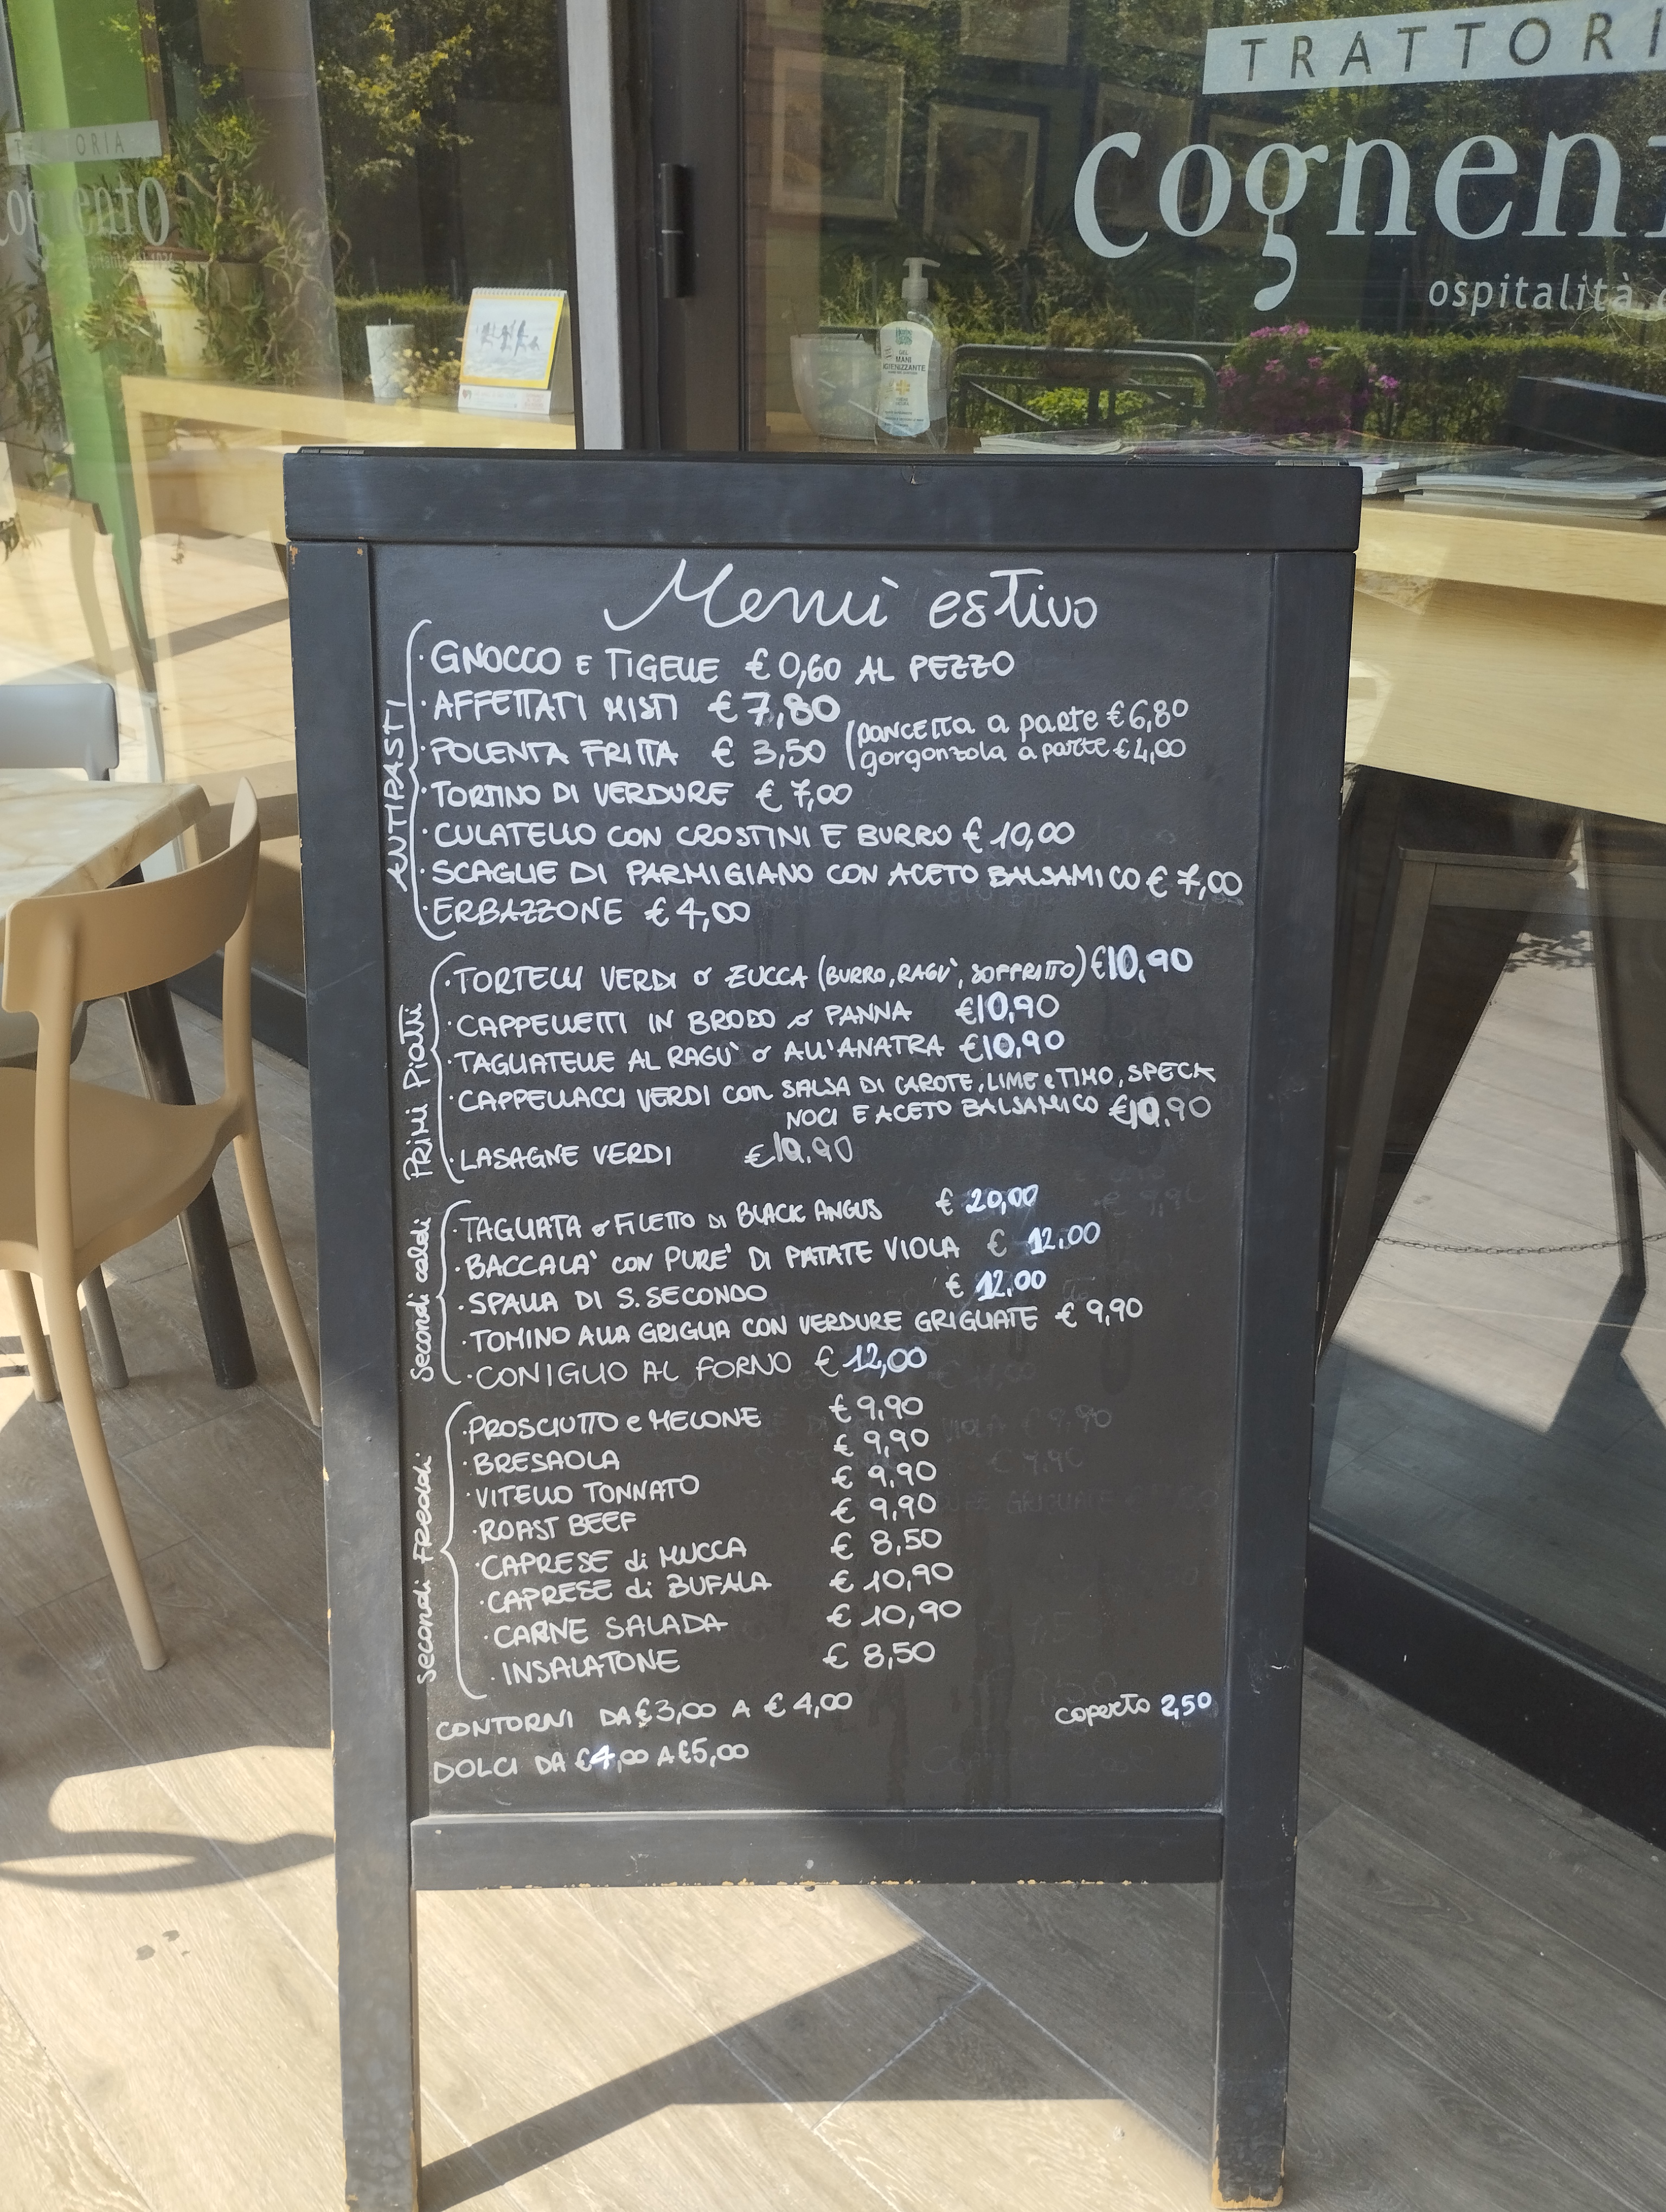 TRATTORI
cognent
ospitalità
ORIA
ognento
GEL
MANI
IGIENIZZANTE
Menù estivo
ANTIPASTI
· GNOCCO E TIGELLE € 0,60 AL PEZZO
· AFFETTATI MISTI € 7,80
· POLENTA FRITTA € 3,50 (pancetta a parte € 6,80
gorgonzola a parte € 4,00
· TORTINO DI VERDURE € 7,00
· CULATELLO CON CROSTINI E BURRO € 10,00
· SCAGLIE DI PARMIGIANO CON ACETO BALSAMICO € 7,00
· ERBAZZONE € 4,00
PRIMI PIATTI
· TORTELLI VERDI o ZUCCA (BURRO, RAGU', SOFFRITTO) €10,90
· CAPPELLETTI IN BRODO o PANNA €10,90
· TAGLIATELLE AL RAGU' o ALL'ANATRA €10,90
· CAPPELLACCI VERDI CON SALSA DI CAROTE, LIME e TIMO, SPECK
NOCI E ACETO BALSAMICO €10,90
· LASAGNE VERDI €10,90
Secondi caldi
· TAGLIATA o FILETTO DI BLACK ANGUS € 20,00
· BACCALA' CON PURE' DI PATATE VIOLA € 12,00
· SPALLA DI S. SECONDO € 12,00
· TOMINO ALLA GRIGLIA CON VERDURE GRIGLIATE € 9,90
· CONIGLIO AL FORNO € 12,00
Secondi FREDDI
· PROSCIUTTO e MELONE € 9,90
· BRESAOLA € 9,90
· VITELLO TONNATO € 9,90
· ROAST BEEF € 9,90
· CAPRESE di MUCCA € 8,50
· CAPRESE di BUFALA € 10,90
· CARNE SALADA € 10,90
· INSALATONE € 8,50
CONTORNI DA €3,00 A € 4,00
coperto 2,50
DOLCI DA €4,00 A €5,00